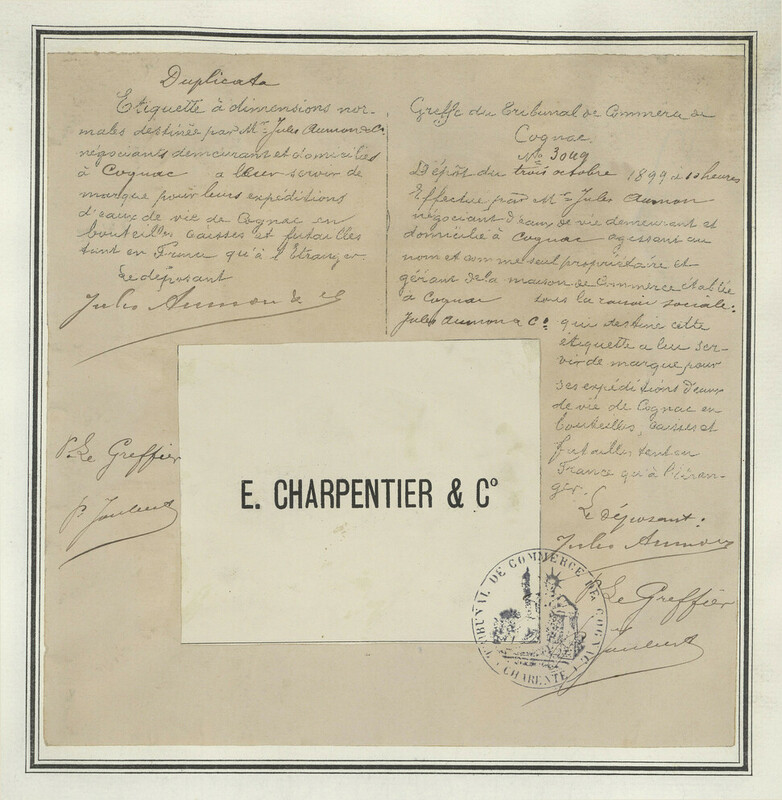 Duplicata
Etiquette à dimensions nor-
males destinée par Mr. Jules Aumon & Co.
négociants demeurant et domiciliés
à Cognac a leur servir de
marque pour leurs expéditions
d'eaux de vie de Cognac en
bouteilles caisses et futailles
tant en France qu'à l'Etranger
Le déposant
Jules Aumon & Co
P. Le Greffier
Greffe du Tribunal de Commerce de
Cognac.
No 3049
Dépôt du trois octobre 1899 à 10 heures
Effectué par Mr. Jules Aumon
négociant d'eaux de vie demeurant et
domicilié à Cognac agissant au
nom et comme seul propriétaire et
gérant de la maison de Commerce établie
à Cognac sous la raison sociale:
Jules Aumon & Co. qui destine cette
étiquette a leu ser-
vir de marque pour
ses expéditions d'eaux
de vie de Cognac en
bouteilles, caisses et
futailles tant en
France qu'à l'Etran-
ger.
Le déposant.
Jules Aumon
P. Le Greffier
E. CHARPENTIER & Co
TRIBUNAL DE COMMERCE DE COGNAC
CHARENTE